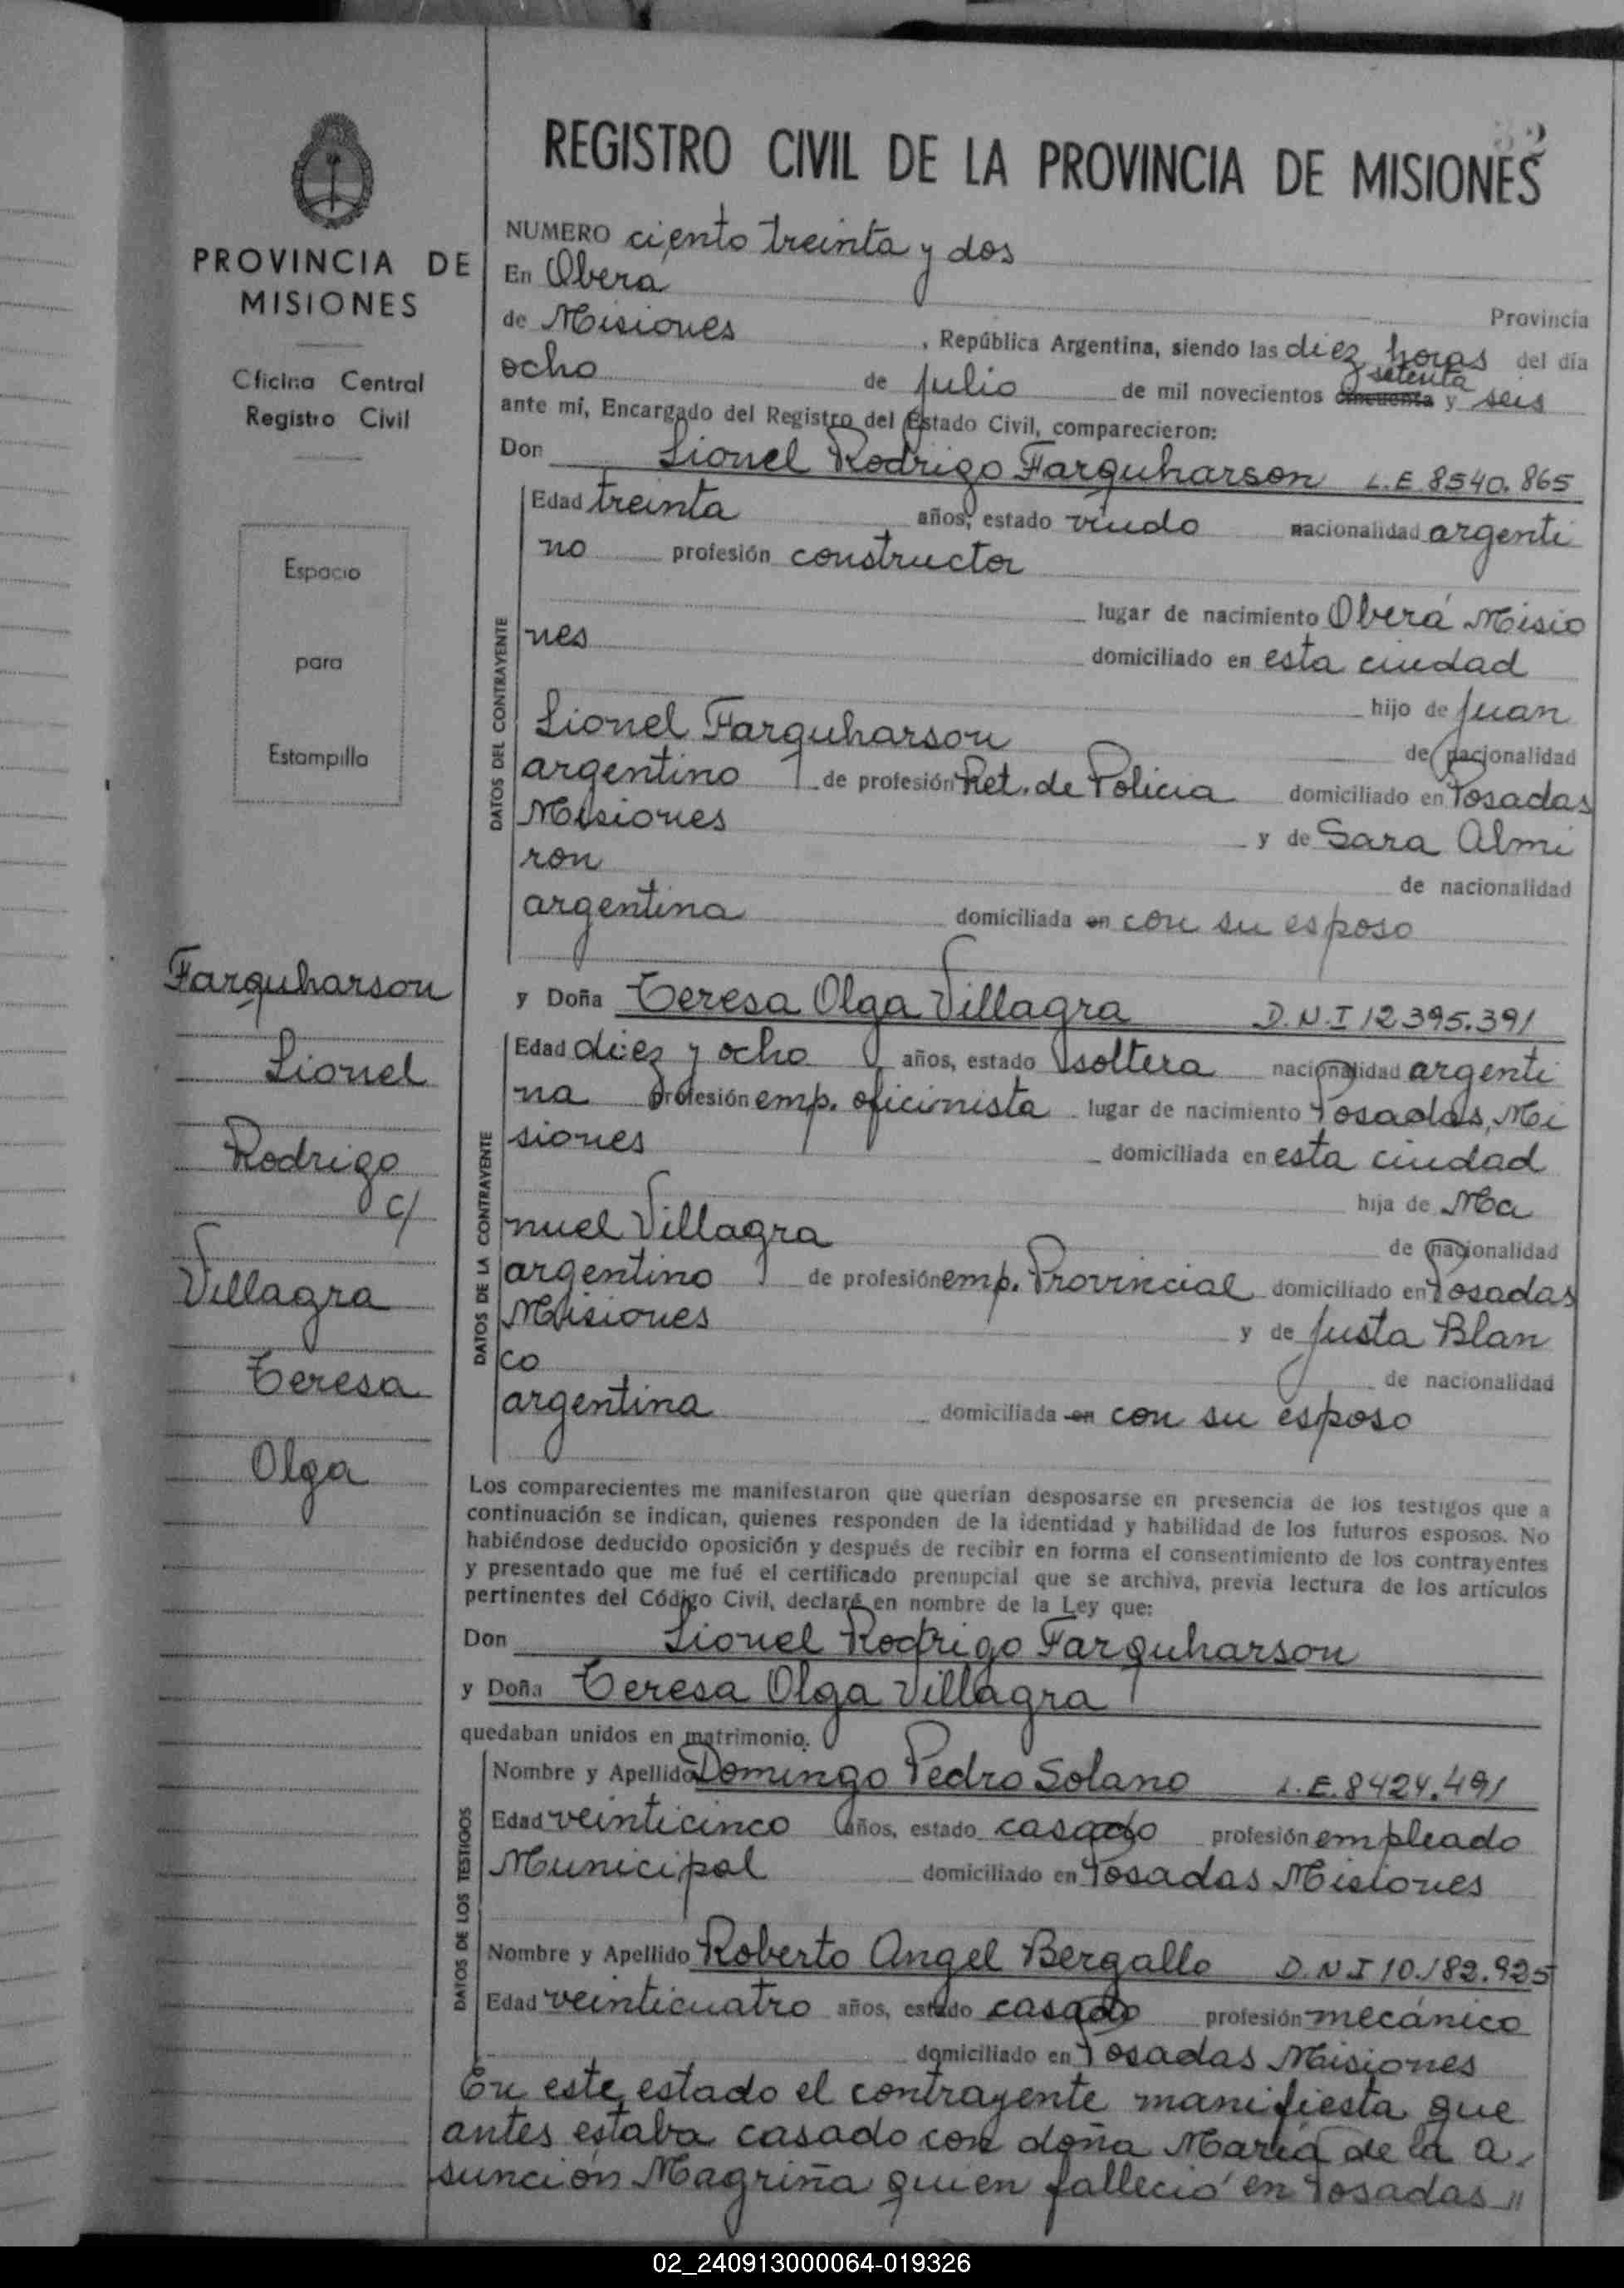 PROVINCIA DE
MISIONES
Oficina Central
Registro Civil
Espacio
para
Estampilla
Farquharson
Lionel
Rodrigo
c/
Villagra
Teresa
Olga
REGISTRO CIVIL DE LA PROVINCIA DE MISIONES
NUMERO ciento treinta y dos
En Obera Provincia
de Misiones, República Argentina, siendo las diez horas del día
setenta
ocho de julio de mil novecientos cincuenta y seis
ante mí, Encargado del Registro del Estado Civil, comparecieron:
Don Lionel Rodrigo Farquharson L.E. 8540.865
DATOS DEL CONTRAYENTE
Edad treinta años, estado viudo nacionalidad argenti
no profesión constructor
lugar de nacimiento Oberá Misio
nes domiciliado en esta ciudad
hijo de Juan
Lionel Farquharson de nacionalidad
argentino de profesión Ret. de Policia domiciliado en Posadas
Misiones y de Sara Almi
ron de nacionalidad
argentina domiciliada en con su esposo
y Doña Teresa Olga Villagra D.N.I 12.395.391
DATOS DE LA CONTRAYENTE
Edad diez y ocho años, estado soltera nacionalidad argenti
na profesión emp. oficinista lugar de nacimiento Posadas, Mi
siones domiciliada en esta ciudad
hija de Ma
nuel Villagra de nacionalidad
argentino de profesión emp. Provincial domiciliado en Posadas
Misiones y de Justa Blan
co de nacionalidad
argentina domiciliada en con su esposo
Los comparecientes me manifestaron que querían desposarse en presencia de los testigos que a
continuación se indican, quienes responden de la identidad y habilidad de los futuros esposos. No
habiéndose deducido oposición y después de recibir en forma el consentimiento de los contrayentes
y presentado que me fué el certificado prenupcial que se archiva, previa lectura de los artículos
pertinentes del Código Civil, declaré en nombre de la Ley que:
Don Lionel Rodrigo Farquharson
y Doña Teresa Olga Villagra
quedaban unidos en matrimonio.
DATOS DE LOS TESTIGOS
Nombre y Apellido Domingo Pedro Solano L.E. 8424.491
Edad veinticinco años, estado casado profesión empleado
Municipal domiciliado en Posadas Misiones
Nombre y Apellido Roberto Angel Bergallo D.N.I 10.182.925
Edad veinticuatro años, estado casado profesión mecánico
domiciliado en Posadas Misiones
En este estado el contrayente manifiesta que
antes estaba casado con doña María de la a,
sunción Magriña quien falleció en Posadas "
02_240913000064-019326